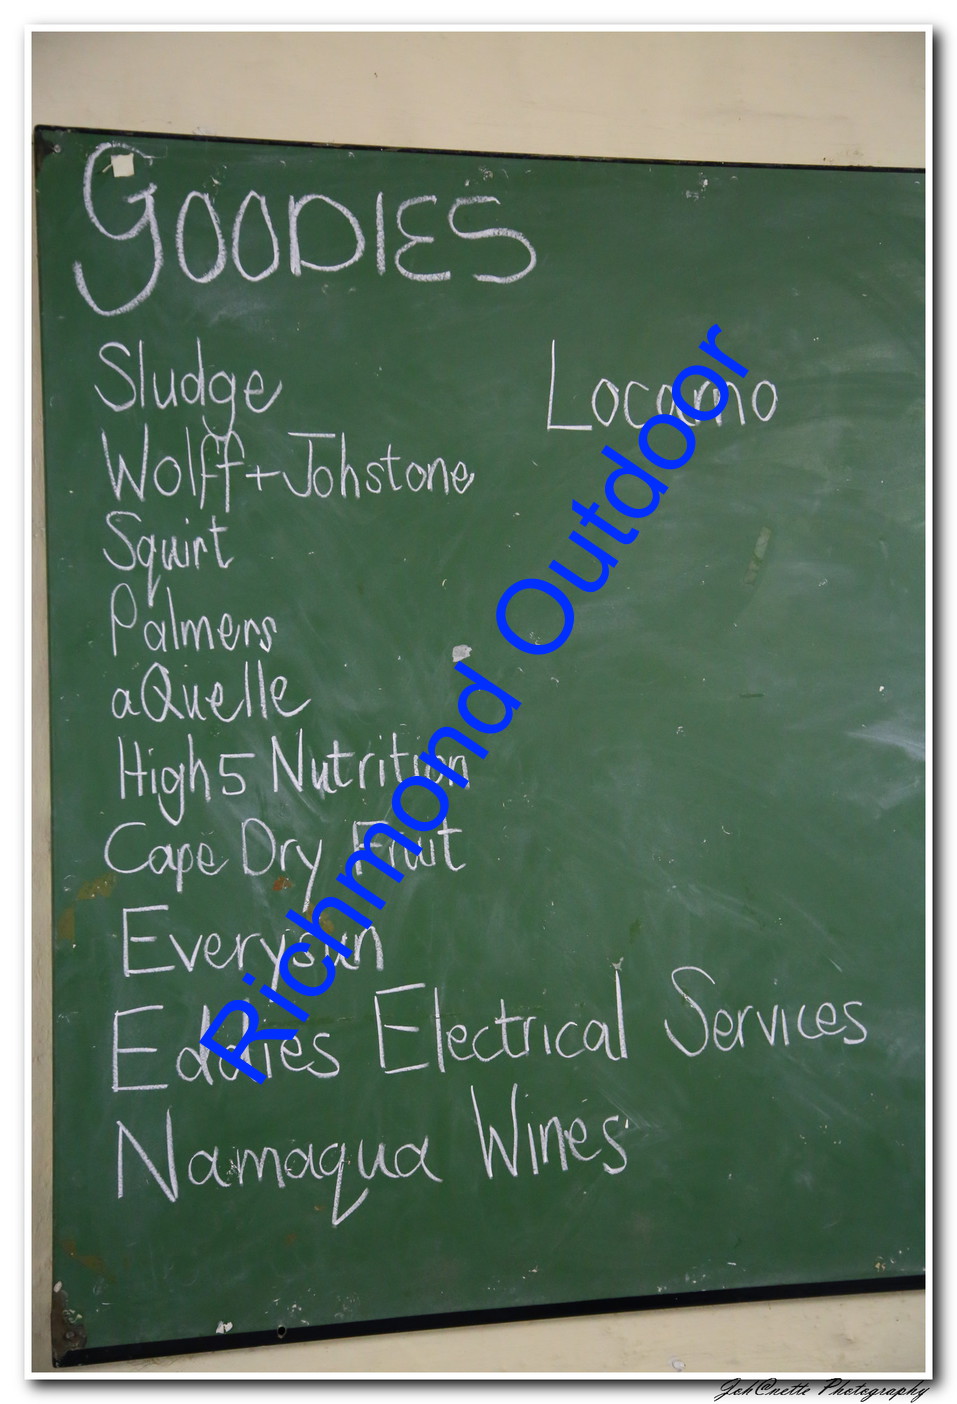 GOODIES
Sludge
Locarno
Wolff + Johstone
Squirt
Palmers
aQuelle
High5 Nutrition
Cape Dry Fruit
Everysun
Eddies Electrical Services
Namaqua Wines
Richmond Outdoor
Joh@nette Photography